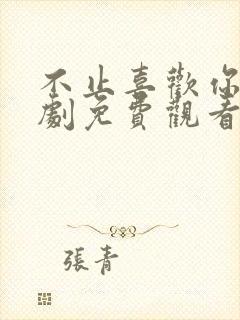 不止喜歡你
劇免費觀看
張青